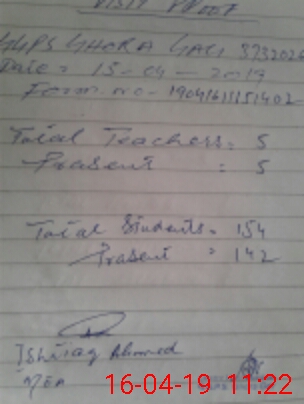 VISIT PROOF
GGPS GHORA GALI 3732026
Date = 15-04-2019
Form no-
Total Teachers = 5
Prasent : 5
Total Students = 154
Prasent = 142
Ishtiaq Ahmed
MEA
16-04-19 11:22